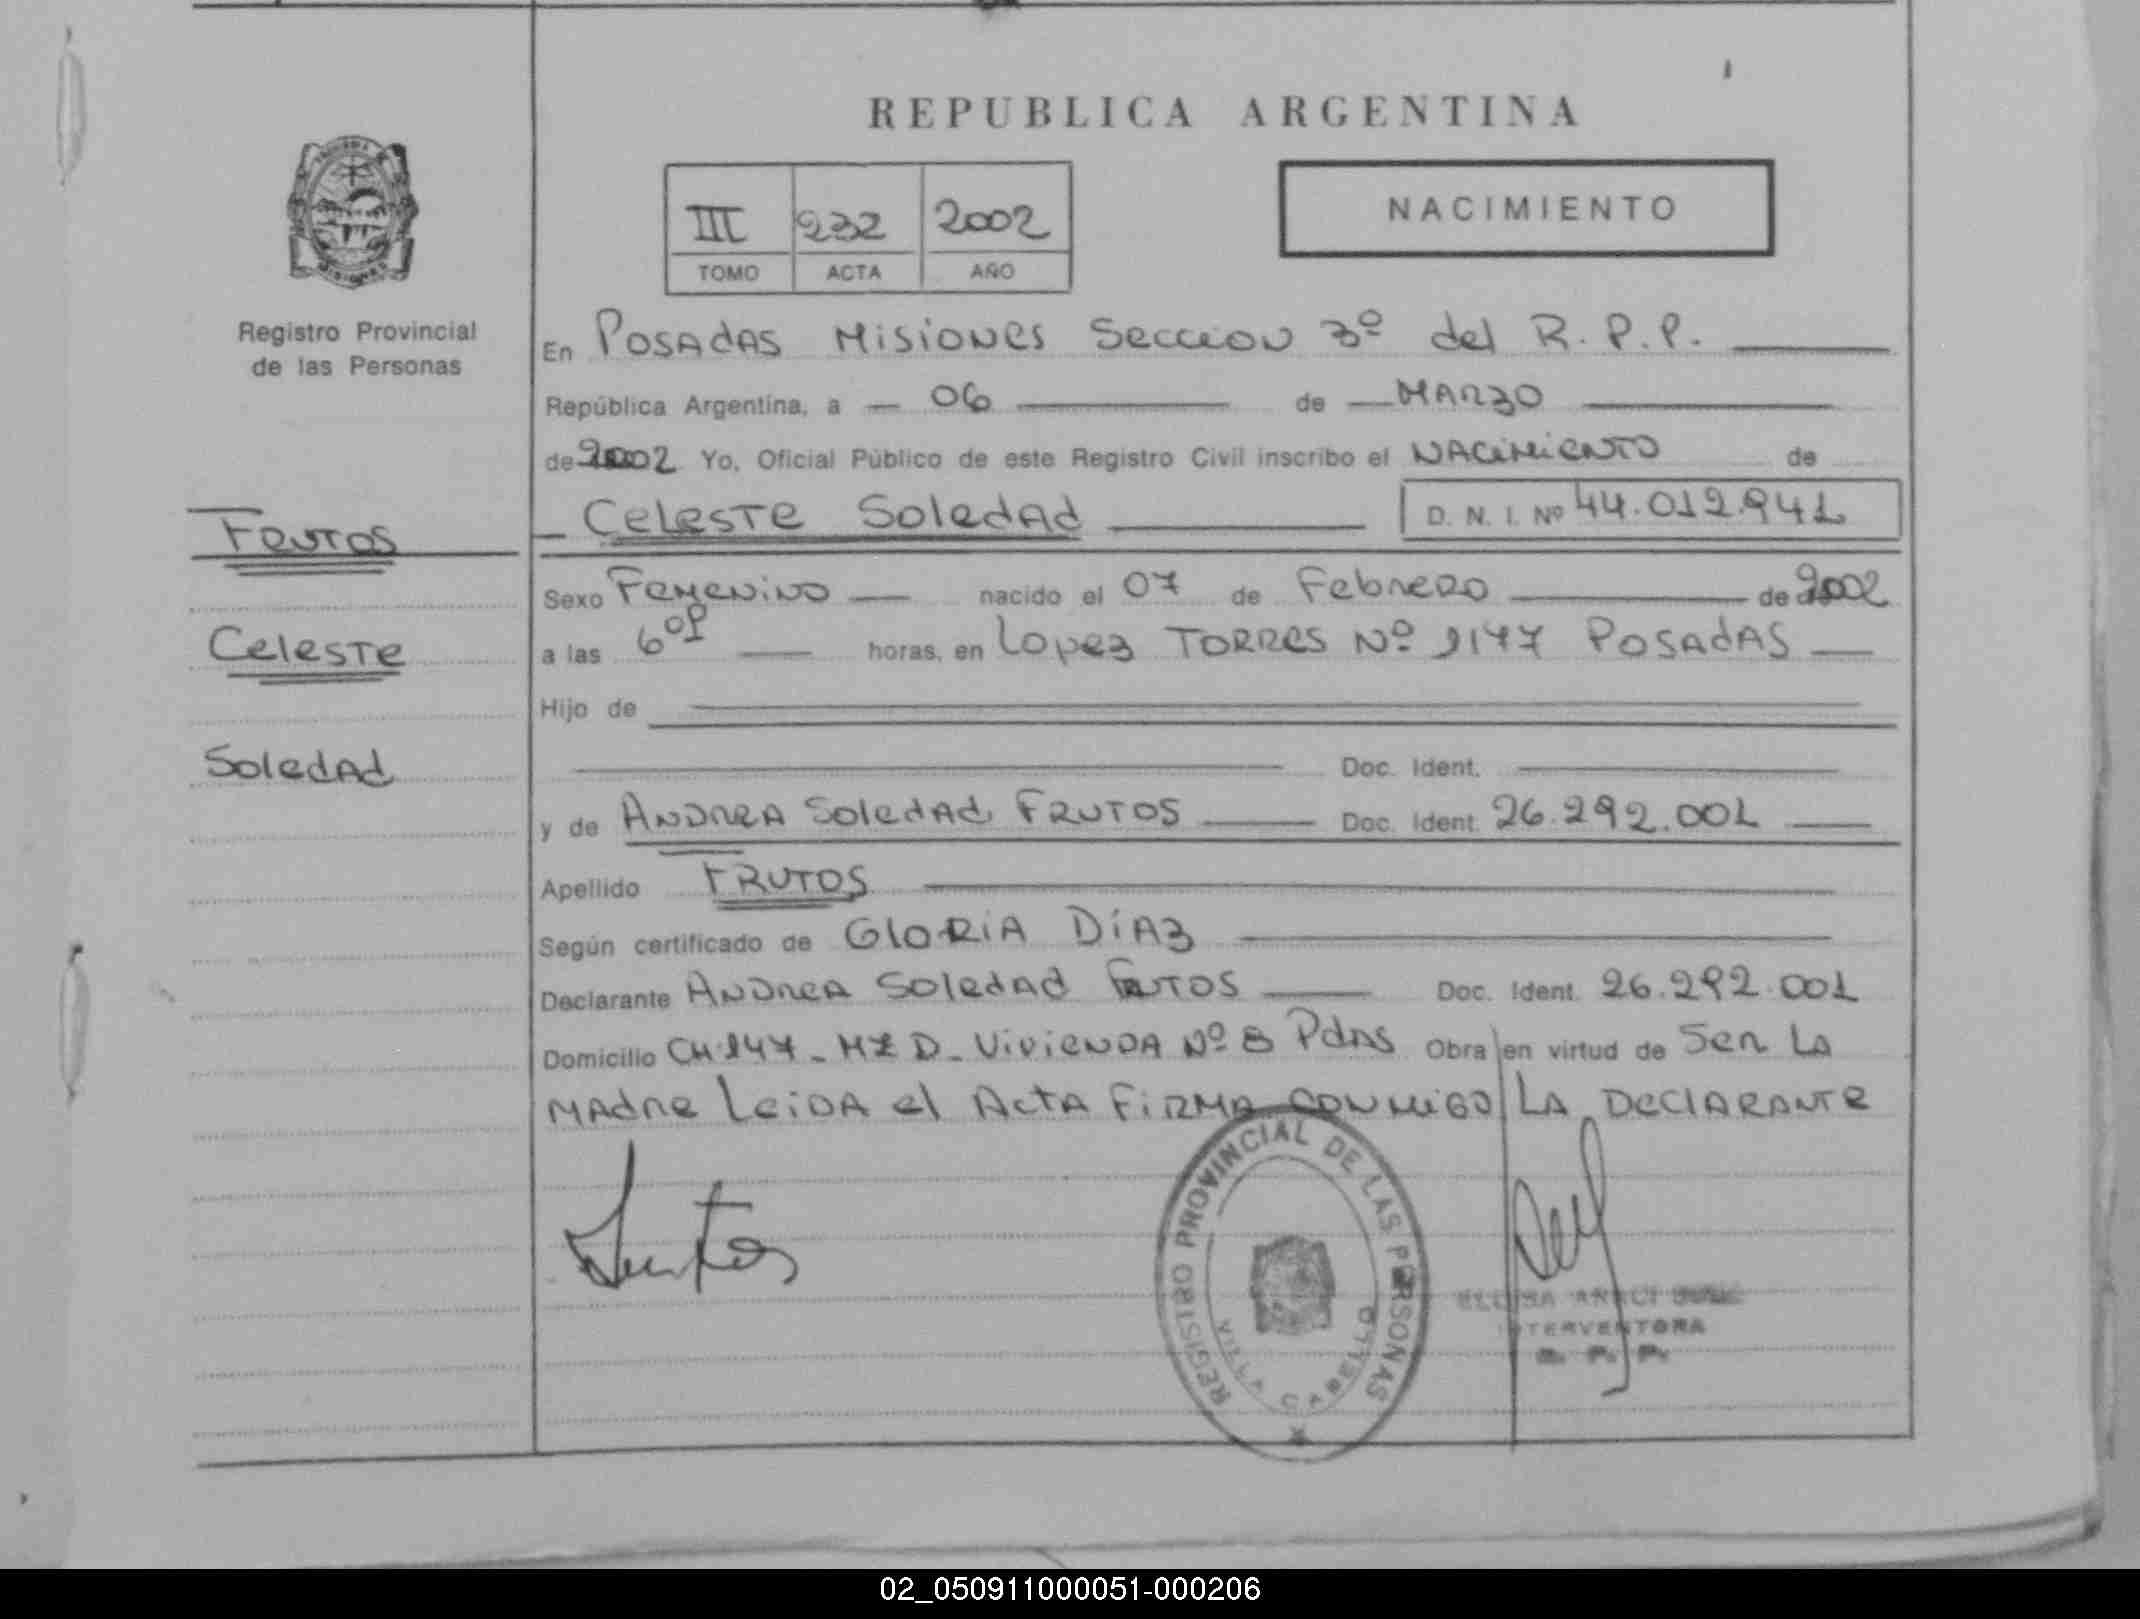 REPUBLICA ARGENTINA
III 232 2002
TOMO ACTA AÑO
NACIMIENTO
MISIONES
Registro Provincial
de las Personas
Frutos
Celeste
Soledad
En Posadas Misiones Seccion 3º del R.P.P.
República Argentina, a 06 de Marzo
de 2002 Yo, Oficial Público de este Registro Civil inscribo el Nacimiento de
Celeste Soledad D. N. I. Nº 44.012.941
Sexo Femenino nacido el 07 de Febrero de 2002
a las 6 horas, en Lopez Torres Nº Posadas
Hijo de
Doc. Ident.
y de Andrea Soledad Frutos Doc. Ident. 26.292.001
Apellido FRUTOS
Según certificado de Gloria Díaz
Declarante Andrea Soledad Frutos Doc. Ident. 26.292.001
Domicilio CH 147 - MZ D - Vivienda Nº 8 Pdas Obra en virtud de Ser La
Madre Leida el Acta Firma conmigo La Declarante
Frutos
REGISTRO PROVINCIAL DE LAS PERSONAS
VILLA CABELLO
INTERVENTORA
R. P. P.
02_050911000051-000206